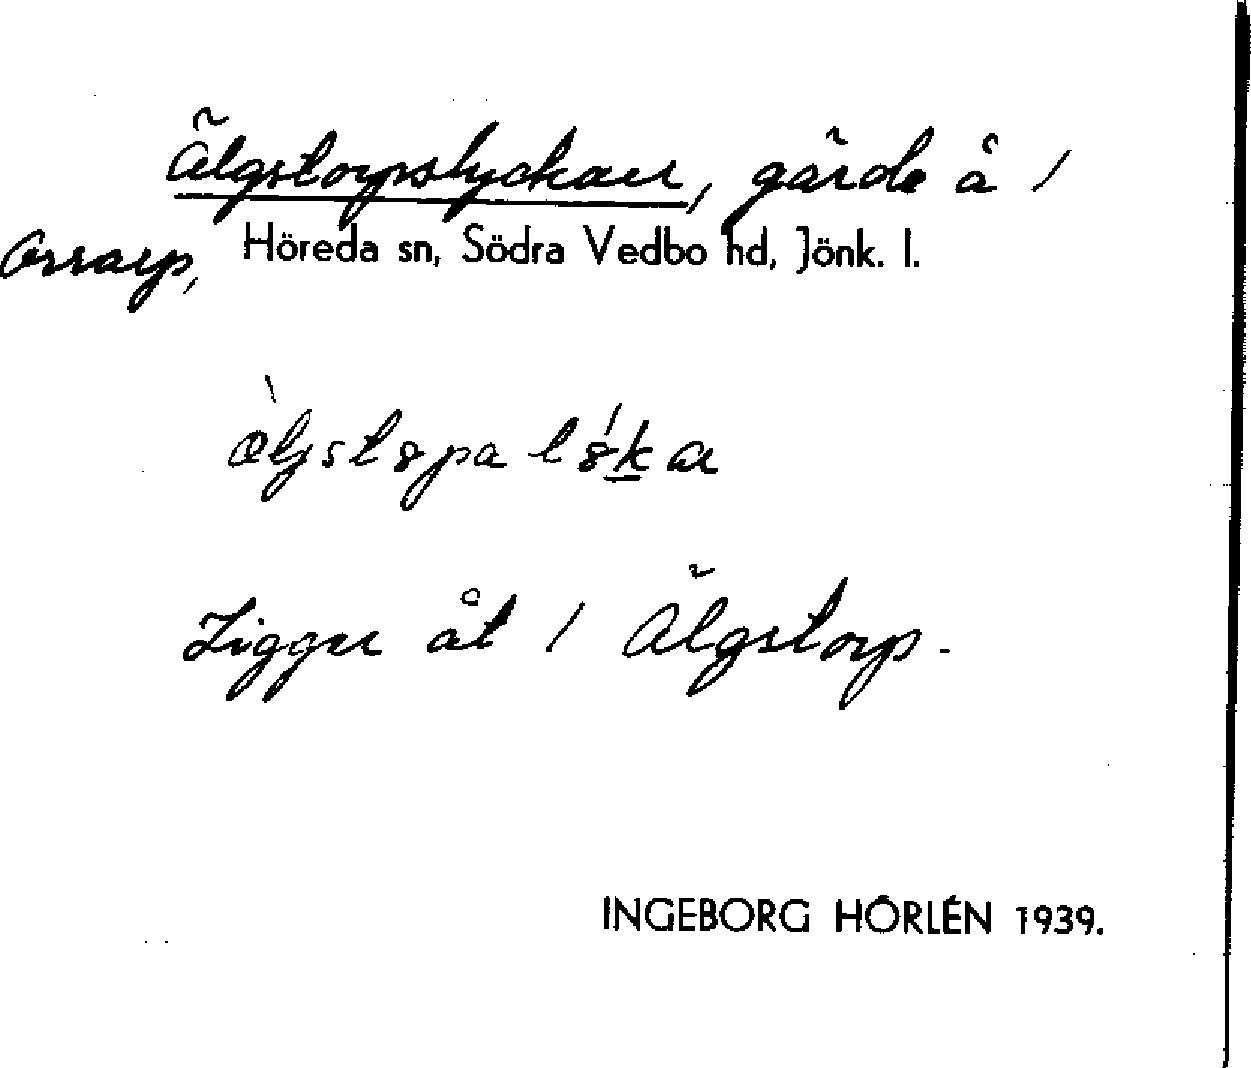 Älgstorpslyckan, gärde å /
Orrarp, Höreda sn, Södra Vedbo hd, Jönk. l.
Ligger åt / Älgstorp.
INGEBORG HÖRLÉN 1939.